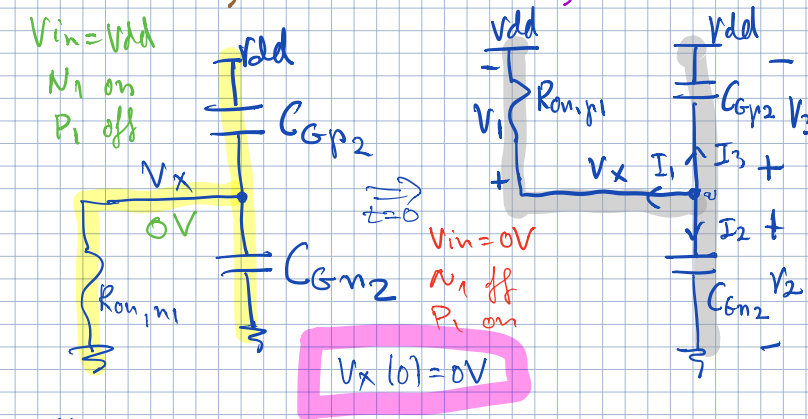 Vin=Vdd
N1 on
P1 off
Vdd
CGp2
Vx
0V
Ron,n1
CGn2
t=0
Vin=0V
N1 off
P1 on
Vx(0)=0V
Vdd
-
V1
+
Ron,p1
Vx
I1
Vdd
CGp2
-
I3
+
I2
+
CGn2
V2
-